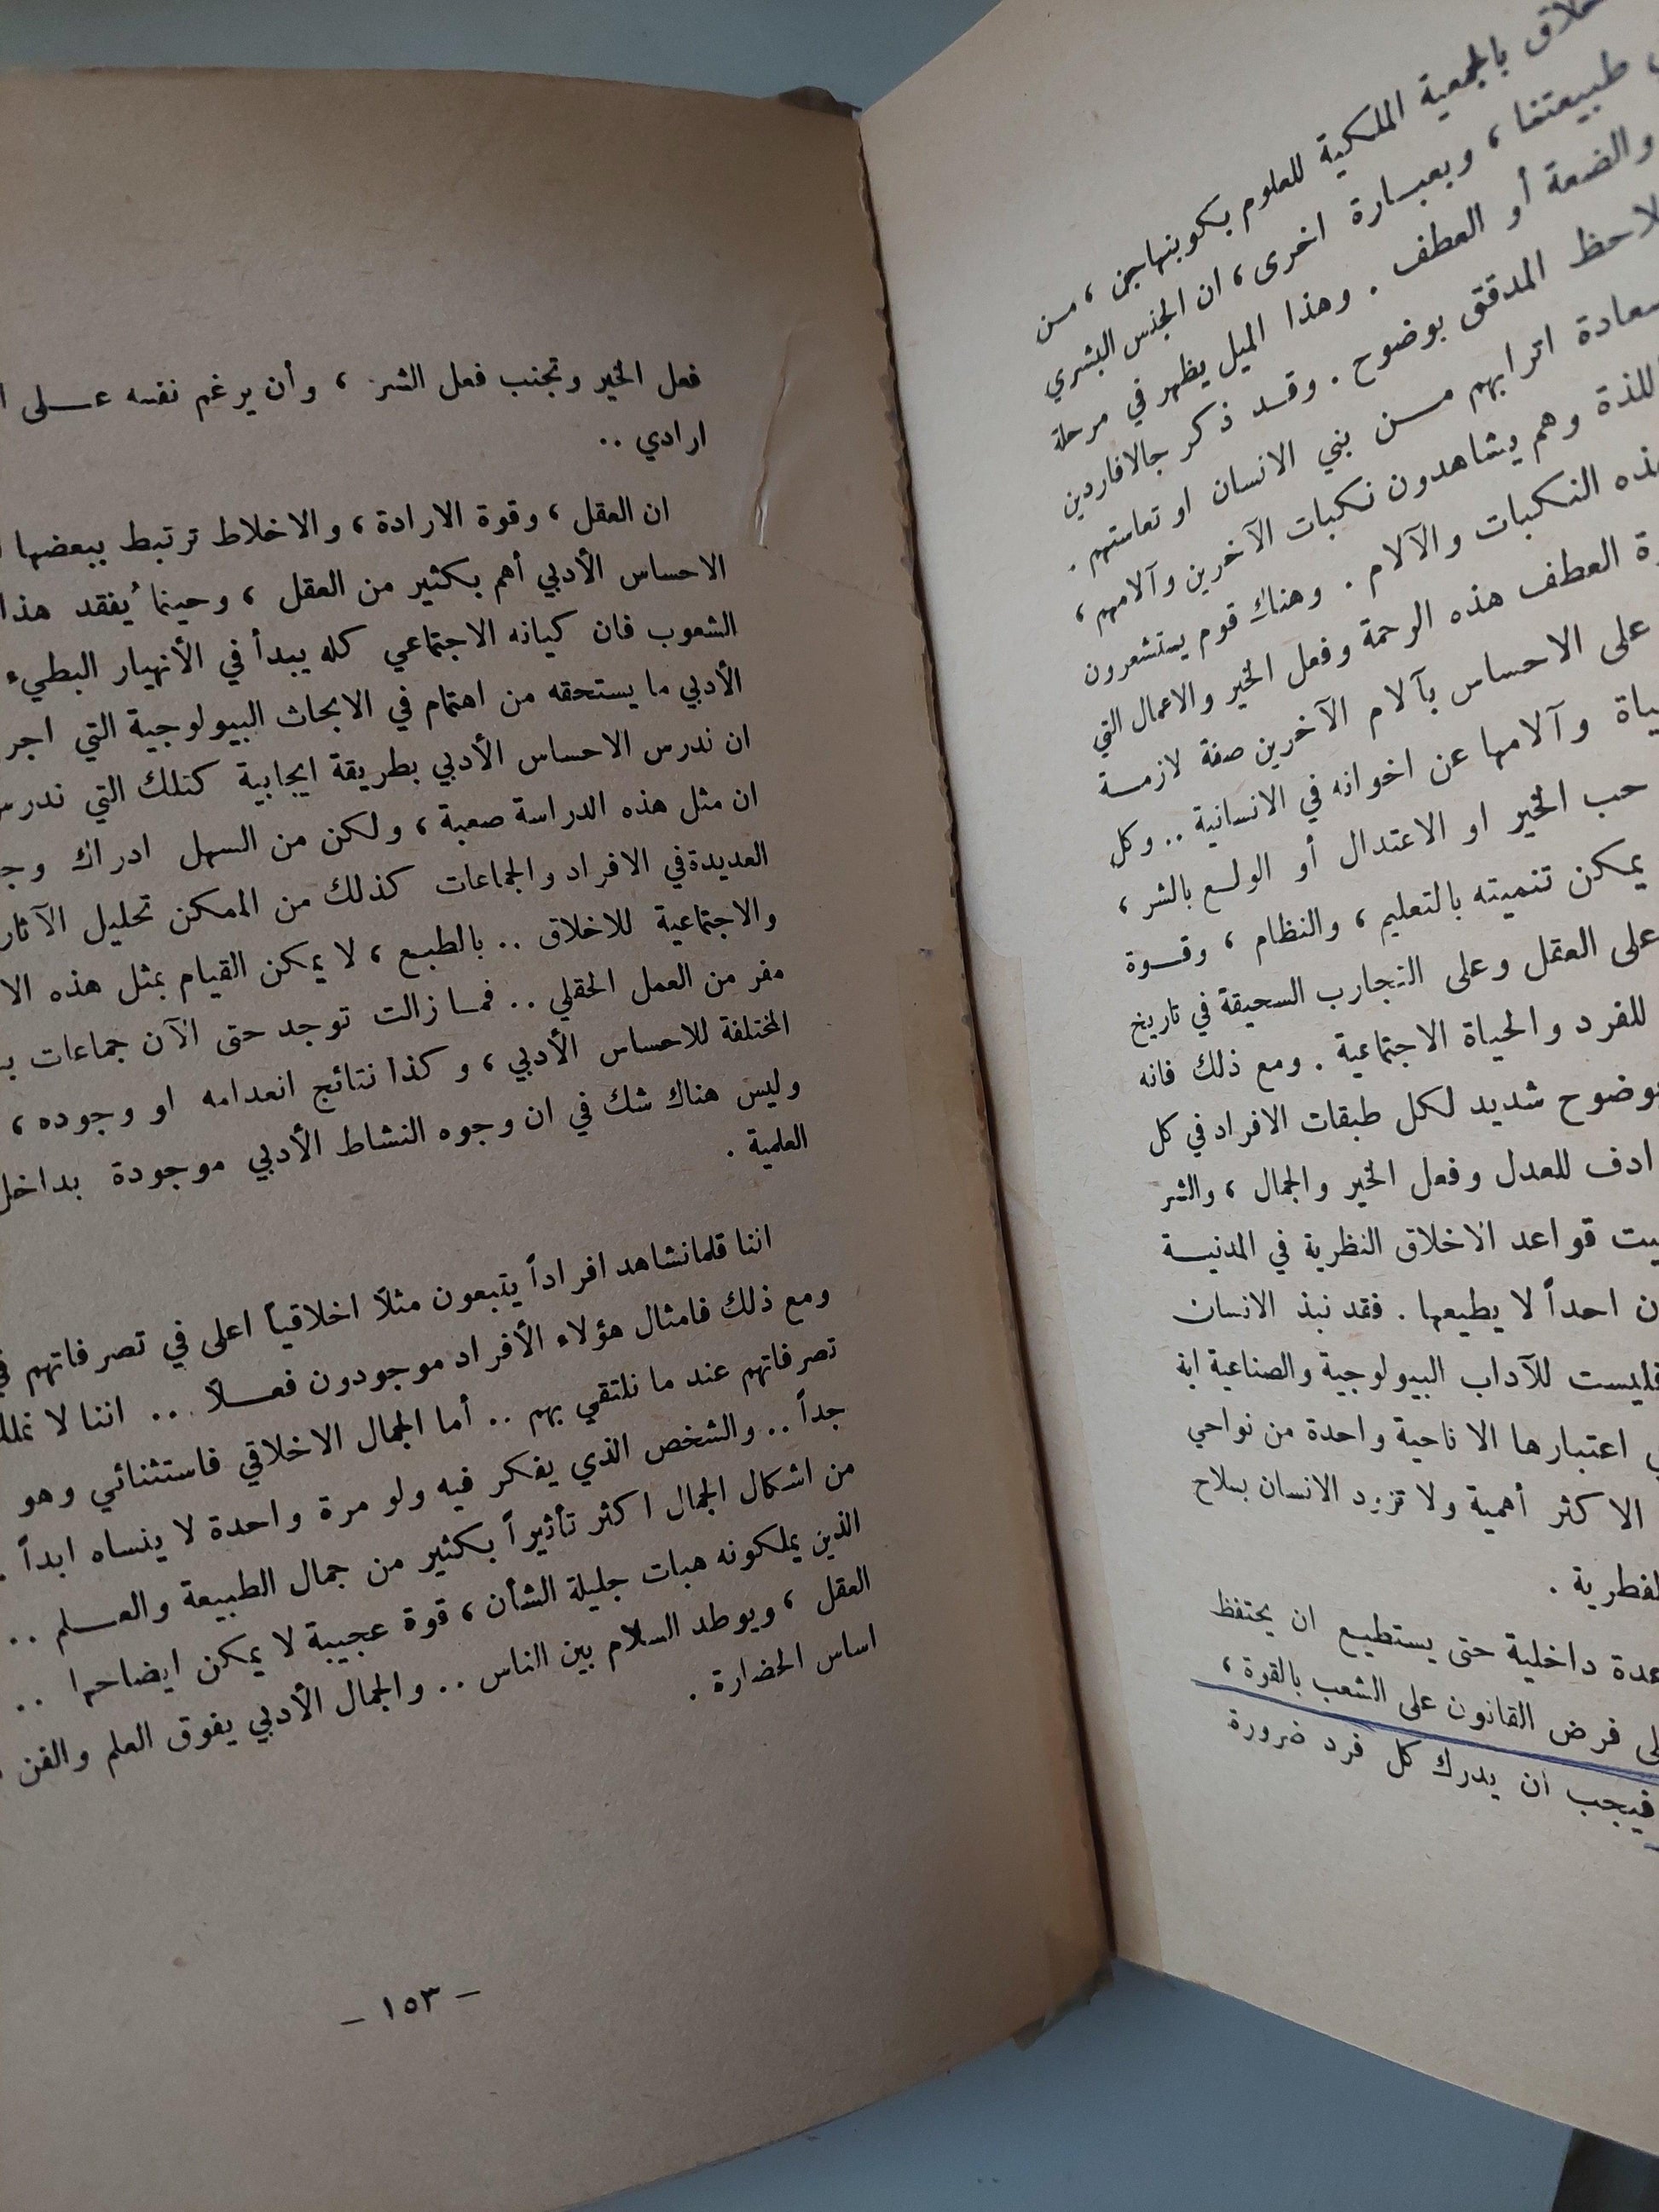 بالجمعية الملكية للعلوم بكوبنهاجن ، من
طبيعتنا ، وبعبارة اخرى ، ان الجنس البشري
والضعة أو العطف . وهذا الميل يظهر في مرحلة
المدقق بوضوح . وقد ذكر جالافاردين
اترابهم من بني الانسان او تعاستهم .
وهم يشاهدون نكبات الآخرين وآلامهم ،
النكبات والآلام . وهناك قوم يستشعرون
العطف هذه الرحمة وفعل الخير والاعمال التي
على الاحساس بآلام الآخرين صفة لازمة
وآلامها عن اخوانه في الانسانية .. وكل
حب الخير او الاعتدال أو الولع بالشر ،
يمكن تنميته بالتعليم ، والنظام ، وقوة
على العقل وعلى التجارب السحيقة في تاريخ
للفرد والحياة الاجتماعية . ومع ذلك فانه
بوضوح شديد لكل طبقات الافراد في كل
للعدل وفعل الخير والجمال ، والشر
قواعد الاخلاق النظرية في المدنية
احداً لا يطيعها . فقد نبذ الانسان
فليست للآداب البيولوجية والصناعية اية
اعتبارها الا ناحية واحدة من نواحي
الاكثر أهمية ولا تزود الانسان بسلاح
داخلية حتى يستطيع ان يحتفظ
فرض القانون على الشعب بالقوة ،
فيجب ان يدرك كل فرد ضرورة
فعل الخير وتجنب فعل الشر ، وأن يرغم نفسه على
ارادي ..
ان العقل ، وقوة الارادة ، والاخلاط ترتبط ببعضها
الاحساس الأدبي أهم بكثير من العقل ، وحينما يُفقد هذا
الشعوب فان كيانه الاجتماعي كله يبدأ في الأنهيار البطيء
الأدبي ما يستحقه من اهتمام في الابحاث البيولوجية التي
ان ندرس الاحساس الأدبي بطريقة ايجابية كتلك التي
ان مثل هذه الدراسة صعبة ، ولكن من السهل ادراك
العديدة في الافراد والجماعات كذلك من الممكن تحليل
والاجتماعية للاخلاق .. بالطبع ، لا يمكن القيام بمثل هذه
مفر من العمل الحقلي .. فما زالت توجد حتى الآن جماعات
المختلفة للاحساس الأدبي ، وكذا نتائج انعدامه او وجوده ،
وليس هناك شك في ان وجوه النشاط الأدبي موجودة
العلمية .
اننا قلما نشاهد افراداً يتبعون مثلاً اخلاقياً اعلى في تصرفاتهم
ومع ذلك فامثال هؤلاء الأفراد موجودون فعلاً ... اننا لا
تصرفاتهم عند ما نلتقي بهم .. أما الجمال الاخلاقي فاستثنائي وهو
جداً .. والشخص الذي يفكر فيه ولو مرة واحدة لا ينساه ابداً
من اشكال الجمال اكثر تأثيراً بكثير من جمال الطبيعة والعلم ..
الذين يملكونه هبات جليلة الشأن ، قوة عجيبة لا يمكن ايضاحها ..
العقل ، ويوطد السلام بين الناس .. والجمال الأدبي يفوق العلم والفن
اساس الحضارة .
– ١٥٣ –